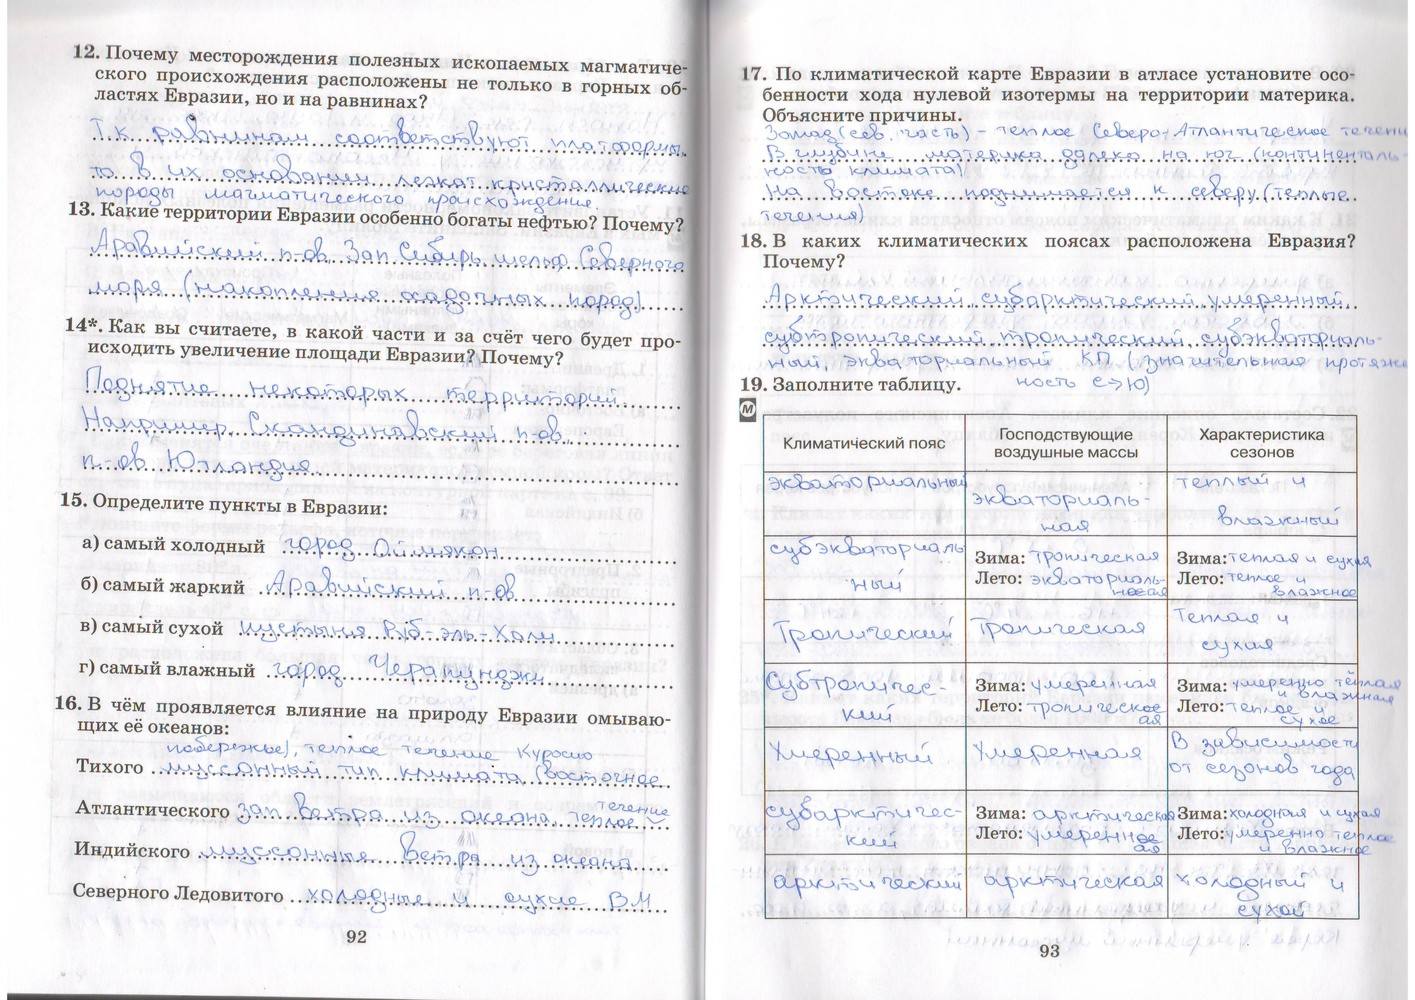 12. Почему месторождения полезных ископаемых магматиче-
ского происхождения расположены не только в горных об-
ластях Евразии, но и на равнинах?
Т.к равнинам соответствуют платформы,
то в их основании лежат кристаллические
породы магматического происхождение.
13. Какие территории Евразии особенно богаты нефтью? Почему?
Аравийский п-ов, Зап Сибирь шельф Северного
моря (накопления осадочных пород)
14*. Как вы считаете, в какой части и за счёт чего будет про-
исходить увеличение площади Евразии? Почему?
Поднятие некоторых территорий
Например Скандинавский п-ов
п-ов Ютландия
15. Определите пункты в Евразии:
а) самый холодный город Оймякон
б) самый жаркий Аравийский п-ов
в) самый сухой пустыня Руб-эль-Хали
г) самый влажный город Черапунджи
16. В чём проявляется влияние на природу Евразии омываю-
щих её океанов:
побережье), теплое течение Куросио
Тихого муссонный тип климата (восточное
Атлантического зап ветра из океана, теплое течение
Индийского муссонные ветра из океана
Северного Ледовитого холодные и сухие В.М
92
17. По климатической карте Евразии в атласе установите осо-
бенности хода нулевой изотермы на территории материка.
Объясните причины.
Запад (сев. часть) - теплое Северо-Атлантическое течени
В глубине материка далеко на юг (континенталь-
ность климата)
На востоке поднимается к северу (теплые
течения)
18. В каких климатических поясах расположена Евразия?
Почему?
Арктический субарктический умеренный
субтропический тропический субэкваториаль-
ный, экваториальный КП (значительная протяже
ность С→Ю)
19. Заполните таблицу.
М
Климатический пояс Господствующие воздушные массы Характеристика сезонов
экваториальный экваториаль-ная теплый и влажный
субэкваториаль ный Зима: тропическая Лето: экваториаль- Зима: теплая и сухая Лето: теплое и влажное
Тропический Тропическая Теплая и сухая
Субтропичес-кий Зима: умеренная Лето: тропическое ая Зима: умеренно тёплая и влажная Лето: теплое и сухое
Умеренный Умеренная В зависимости от сезонов года
субарктичес-кий Зима: арктическая Лето: умеренное ая Зима: холодная и сухая Лето: умеренно теплое и влажное
арктический арктическая холодный и сухой
93